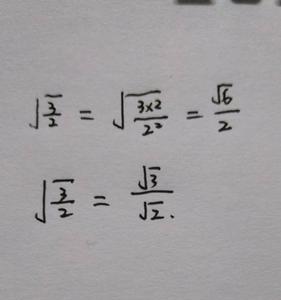 √(3/2) = √((3×2)/2²) = √6/2
√(3/2) = √3/√2.